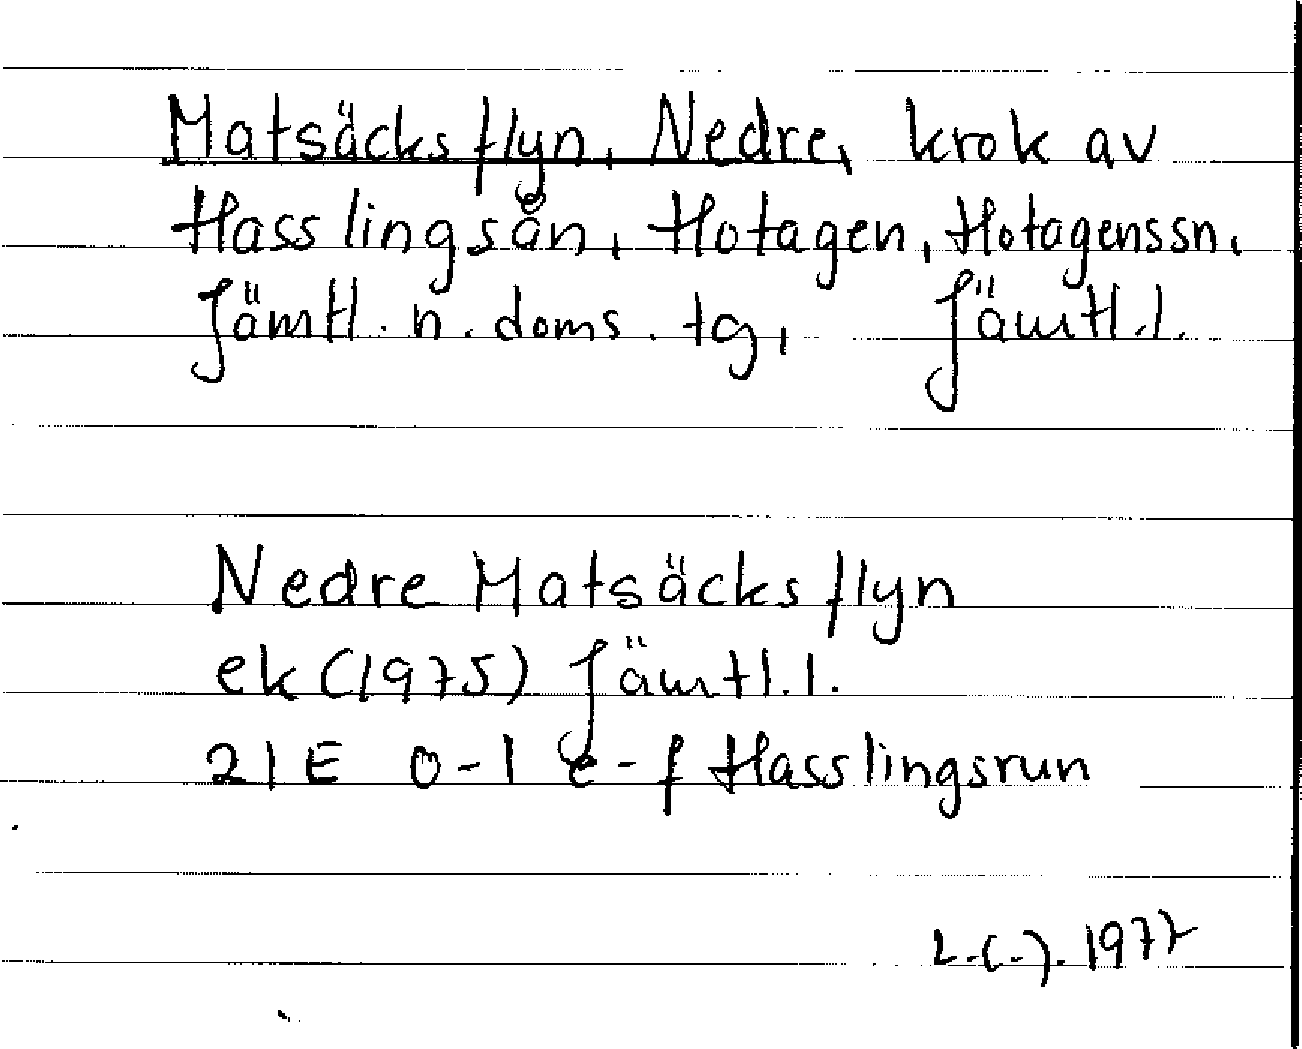 Matsäcksflyn, Nedre, krok av
Hasslingsån, Hotagen, Hotagenssn,
Jämtl. n. doms. tg, Jämtl. l.
Nedre Matsäcksflyn
ek (1975) Jämtl. l.
21E 0-1 e-f Hasslingsrun
1977